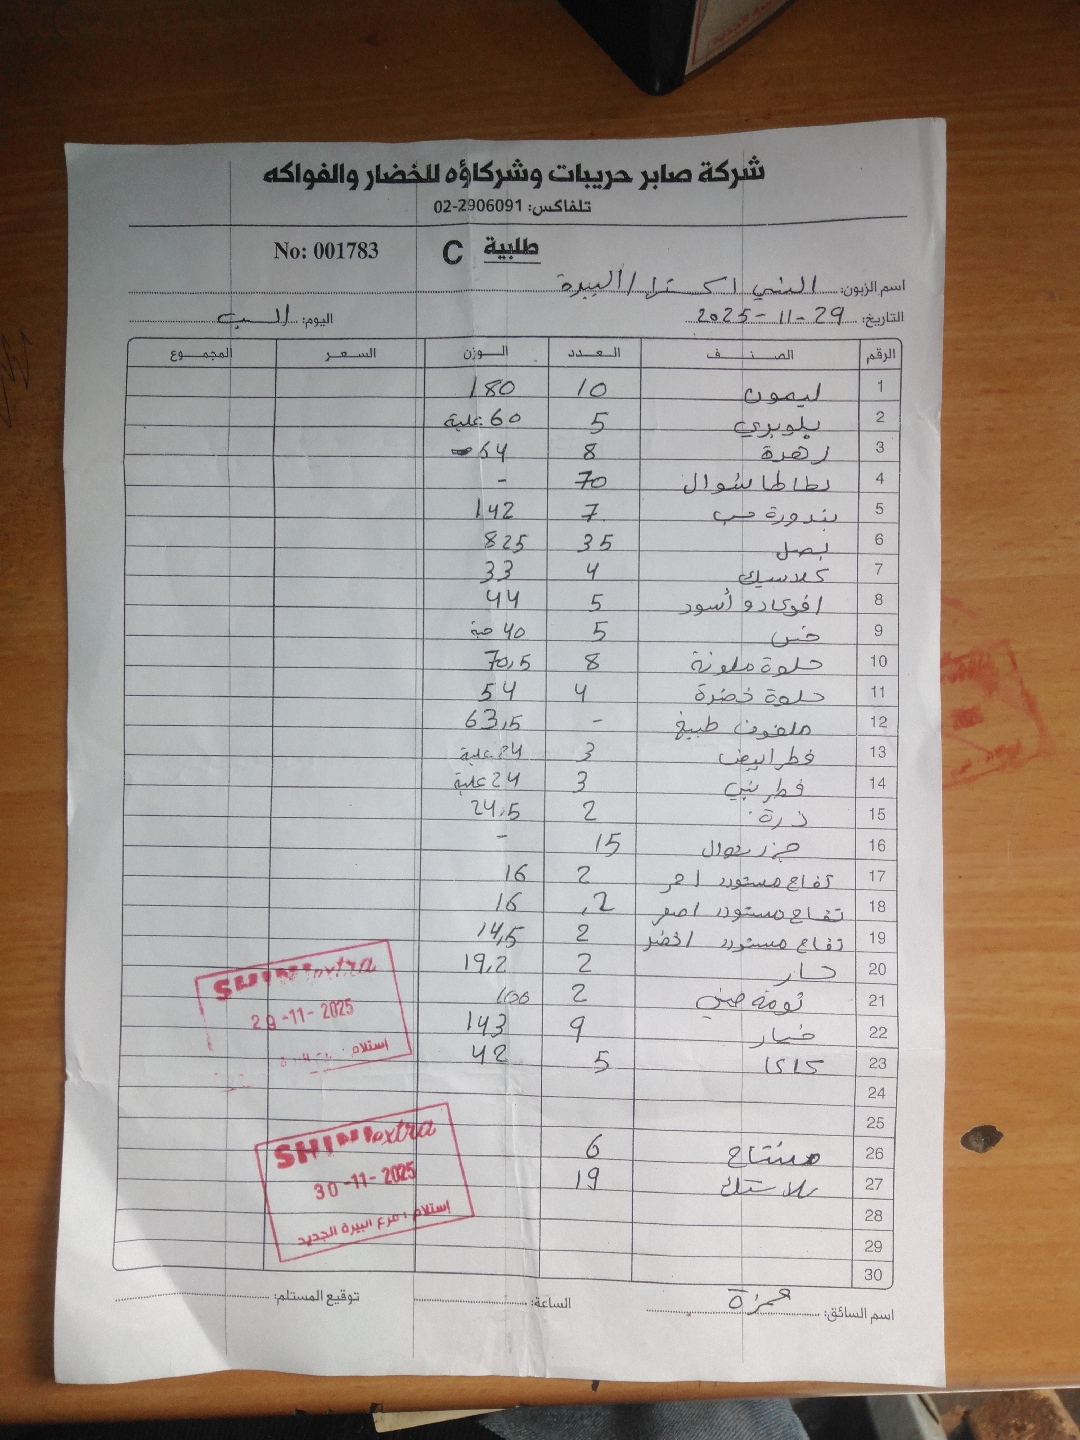 شركة صابر حريبات وشركاؤه للخضار والفواكه
تلفاكس: 02-2906091
طلبية C No: 001783
اسم الزبون: الشني اكسترا / البيرة
التاريخ: 29-11-2025 اليوم: السبت
الرقم الصنف العدد الوزن السعر المجموع
1 ليمون 10 180
2 بلوبري 5 60 علبة
3 زهرة 8 64
4 بطاطا شوال 70 -
5 بندورة حب 7 142
6 بصل 35 825
7 كلاسيك 4 33
8 افوكادو أسود 5 44
9 خس 5 40 حبة
10 حلوة ملونة 8 70,5
11 حلوة خضرة 4 54
12 ملفوف طبيخ - 63,5
13 فطر ابيض 3 24 علبة
14 فطر بني 3 24 علبة
15 ذرة 2 24,5
16 جزر شوال 15 -
17 تفاح مستورد احمر 2 16
18 تفاح مستورد اصفر 2 16
19 تفاح مستورد اخضر 2 14,5
20 حار 2 19,2
21 ثومة صيني 2 100
22 خيار 9 143
23 كاكا 5 42
24
25
26 مشتاح 6
27 بلاستك 19
28
29
30
SHINI extra
29-11-2025
إستلام :
SHINI extra
30-11-2025
إستلام : فرع البيرة الجديد
اسم السائق: حمزة الساعة: توقيع المستلم: